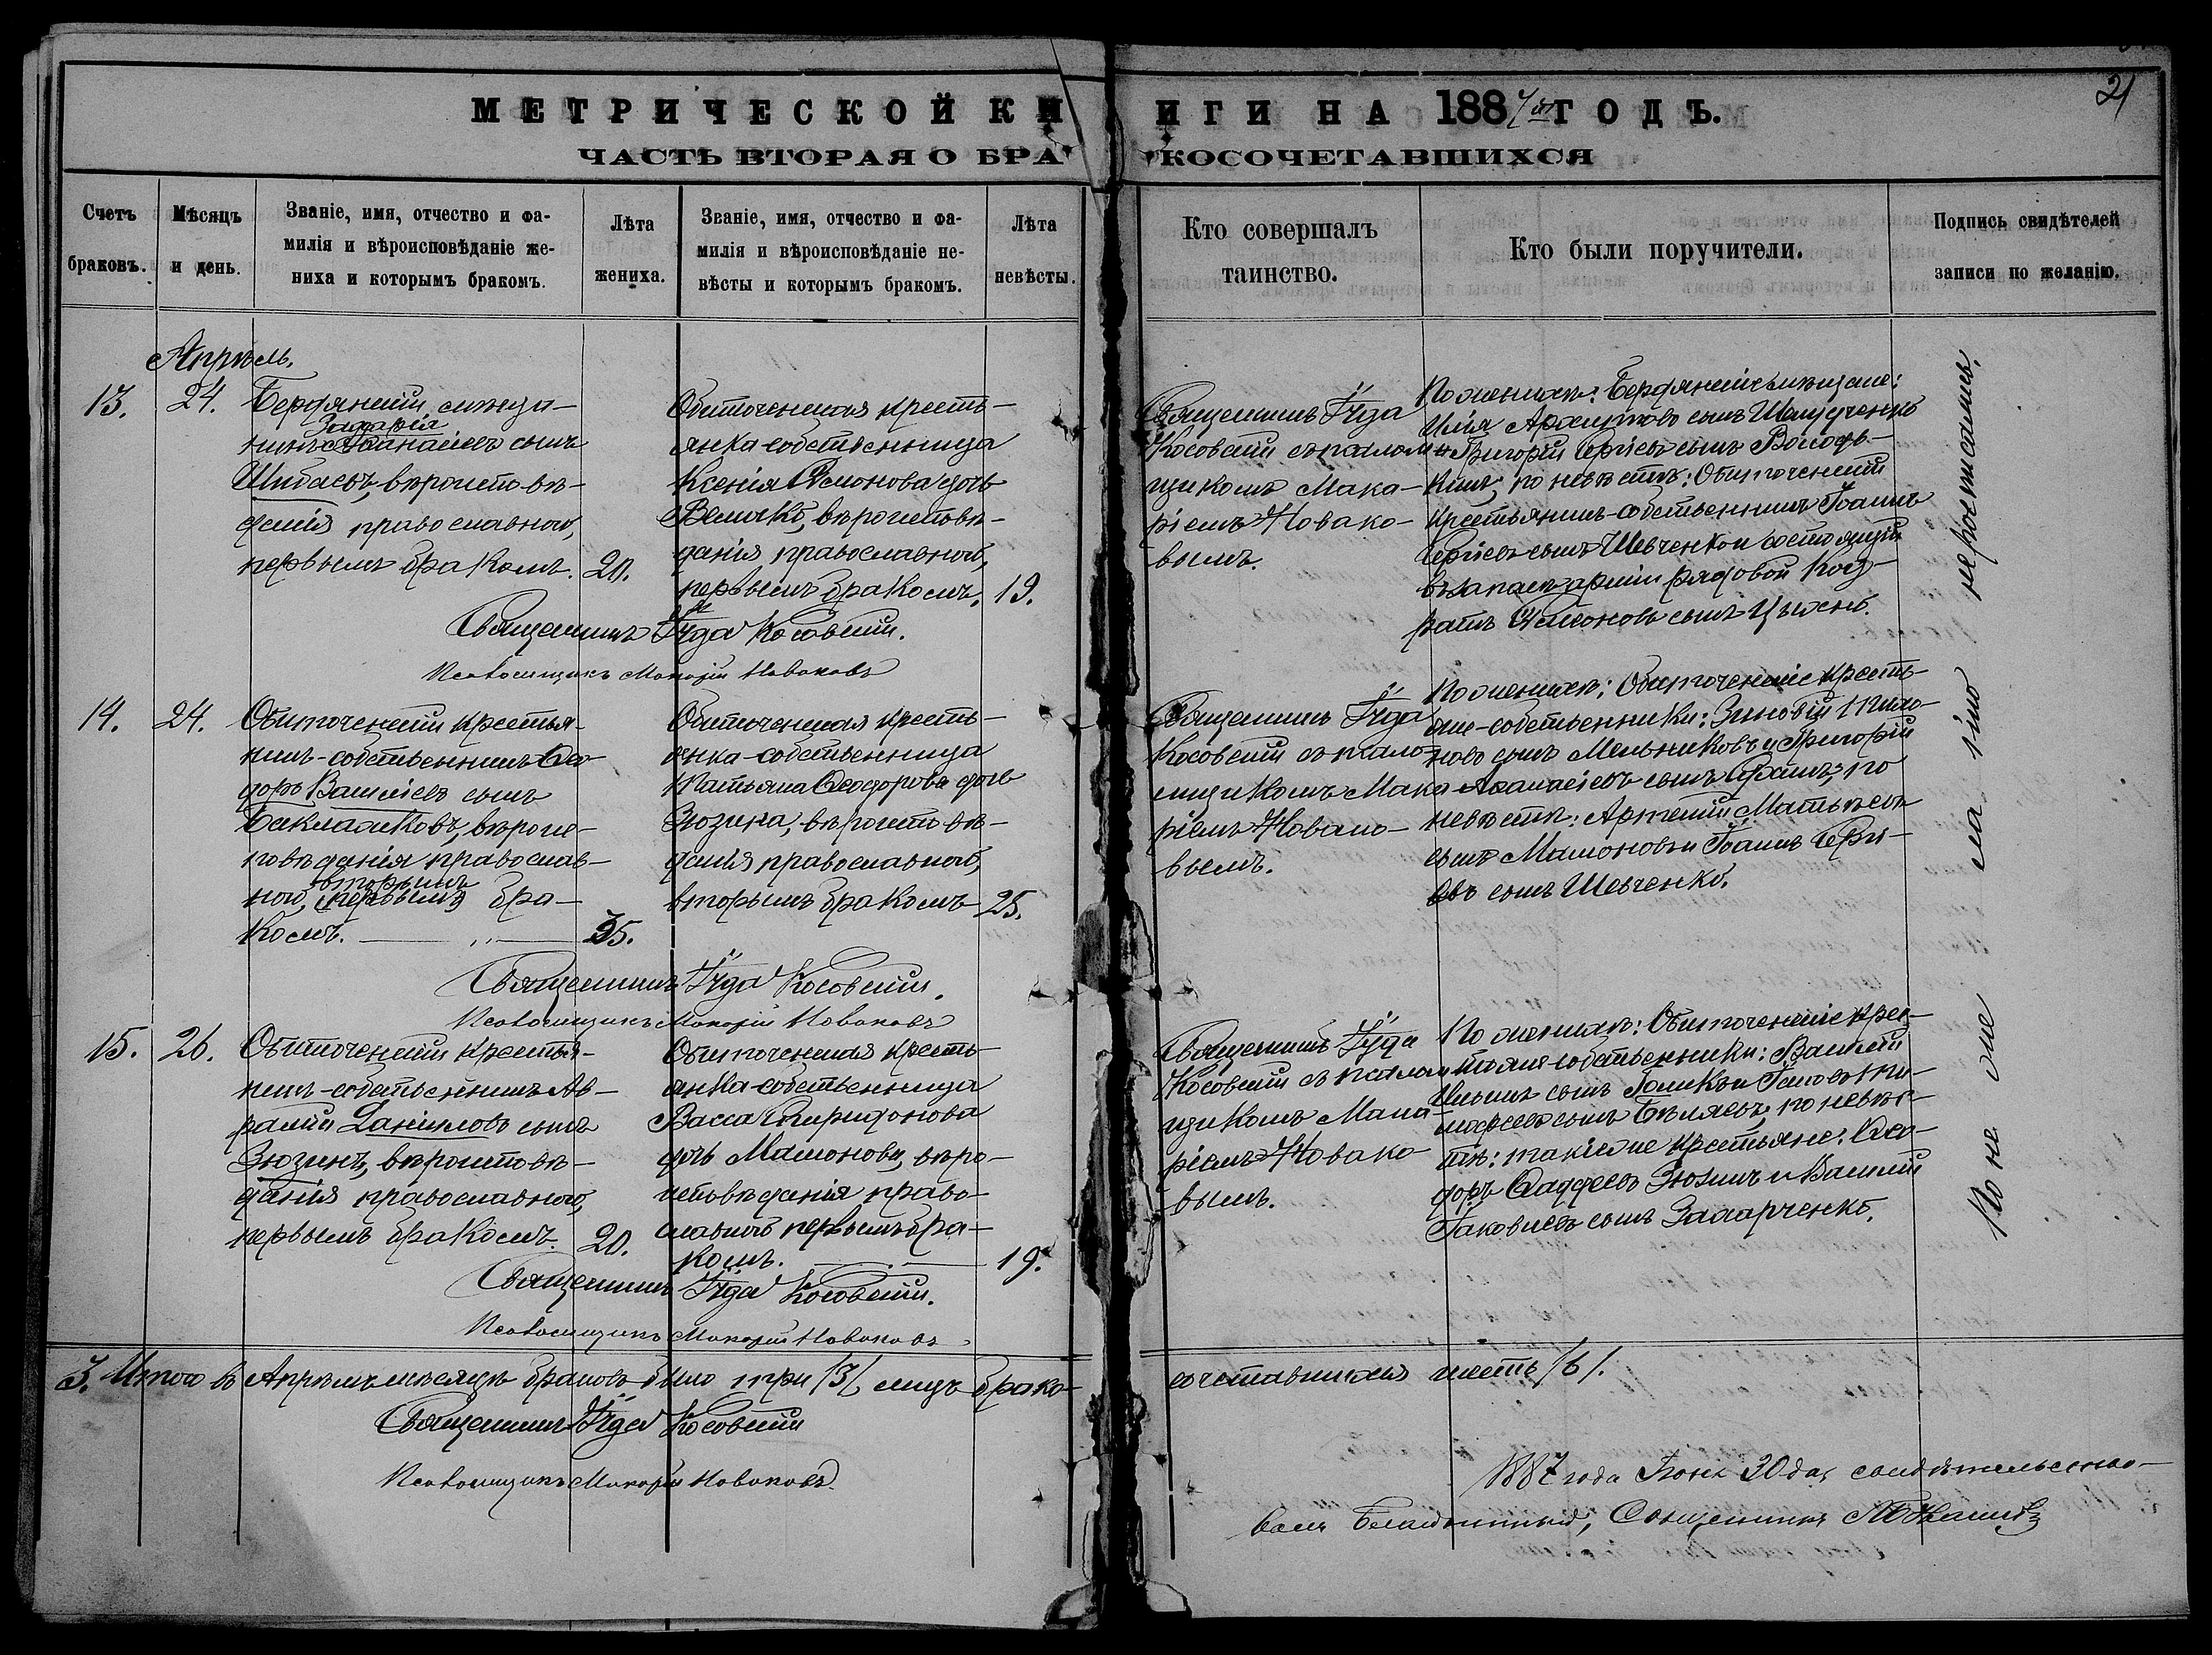 21
МЕТРИЧЕСКОЙ КНИГИ НА 1887й ГОДЪ.
ЧАСТЬ ВТОРАЯ О БРАКОСОЧЕТАВШИХСЯ
Счетъ браковъ.
Мѣсяцъ и день.
Званіе, имя, отчество и фа-
милія и вѣроисповѣданіе же-
ниха и которымъ бракомъ.
Лѣта жениха.
Званіе, имя, отчество и фа-
милія и вѣроисповѣданіе не-
вѣсты и которымъ бракомъ.
Лѣта невѣсты.
Кто совершалъ
таинство.
Кто были поручители.
Подпись свидѣтелей
записи по желанію.
Апрѣль.
13.
24.
Бердянскій мѣща-
Захарія
нинъ Аѳанасіевъ сынъ
Шибаевъ, вѣроисповѣ-
данія православнаго,
первымъ бракомъ.
20.
Обиточенская кресть-
янка-собственница
Ксенія Симонова дочь
Величко, вѣроисповѣ-
данія православнаго,
первымъ бракомъ.
19.
Священникъ Іуда
Косовскій съ псалом-
щикомъ Мака-
ріемъ Новако-
вымъ.
По женихѣ: Бердянскіе мѣщане:
Илія Архиповъ сынъ
и Григорій Сергіевъ сынъ
по невѣстѣ: Обиточенскій
крестьянинъ-собственникъ Іоаннъ
Сергіевъ сынъ Шевченко и состоящій
въ запасѣ арміи рядовой Код-
ратъ сынъ
Священникъ Іуда Косовскій.
Псаломщикъ Макарій Новаковъ
14.
24.
Обиточенскій крестья-
нинъ-собственникъ Ѳео-
доръ Василіевъ сынъ
Баклажковъ, вѣроис-
повѣданія православ-
вторымъ
наго, (первымъ) бра-
комъ.
35.
Обиточенская кресть-
янка-собственница
Татьяна Ѳеодорова дочь
Зюзина, вѣроисповѣ-
данія православнаго,
вторымъ бракомъ
25.
Священникъ Іуда
Косовскій съ псало-
мщикомъ Мака-
ріемъ Новако-
вымъ.
По женихѣ: Обиточенскіе кресть-
яне-собственники: Зиновій
сынъ Мельниковъ и Григорій
Аѳанасіевъ сынъ по
невѣстѣ: Артемій Матѳѣевъ
сынъ Мамоновъ и Іоаннъ Сергі-
евъ сынъ Шевченко.
Священникъ Іуда Косовскій.
Псаломщикъ Макарій Новаковъ
15.
26.
Обиточенскій крестья-
нинъ-собственникъ Ав-
рамій Даніиловъ сынъ
Зюзинъ, вѣроисповѣ-
данія православнаго,
первымъ бракомъ.
20.
Обиточенская кресть-
янка-собственница
Васса Спиридонова
дочь Мамонова, вѣро-
исповѣданія право-
славнаго первымъ бра-
комъ.
19.
Священникъ Іуда
Косовскій съ псалом-
щикомъ Мака-
ріемъ Новако-
вымъ.
По женихѣ: Обиточенскіе крес-
тьяне-собственники: Василій
Ильинъ сынъ и Іаковъ Ти-
моѳеевъ сынъ Бѣляевъ, по невѣс-
тѣ: такіе же крестьяне: Ѳео-
доръ Ѳаддеевъ Зюзинъ и Василій
Іаковлевъ сынъ Захарченко.
Священникъ Іуда Косовскій.
Псаломщикъ Макарій Новаковъ
3. Итого въ Апрѣлѣ мѣсяцѣ браковъ было три /3/ лицъ брако-
сочетавшихся шесть /6/.
Священникъ Іуда Косовскій
Псаломщикъ Макарій Новаковъ.
1887 года Іюня 30 дня свидѣтельство-
валъ Благочинный, Священникъ